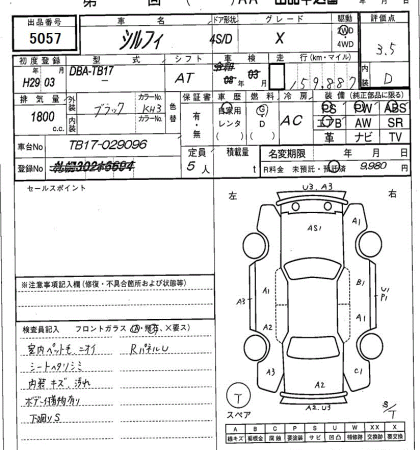 出品番号 車名 ドア形状 グレード 駆動 評価点
5057 シルフィ 4S/D X 2WD 4WD 3.5
初度登録 型式 シフト 車検 走行(km・マイル) 内装
H29年 03月 DBA-TB17 AT 159,887 D
排気量 外装 カラーNo. 色替 保証書 車歴 燃料 冷房 装備(純正部品に限る)
1800 c.c. ブラック KH3 有・無 自家用 レンタ G D AC PS PW ABS
エアB AW SR
革 ナビ TV
車台No TB17-029096 定員 5人 積載量 t 名変期限 年 月 日
登録No R料金 未預託・預託済 9,980円
セールスポイント
左 右
U3.A3
AS1
A1
A3 A1 B1 U1 P1
A2 A1
A3 A2 C1
A2.U3
※注意事項記入欄(修復・不具合箇所および状態等)
検査員記入 フロントガラス(A・飛石、×要ス)
室内ペットモ ニオイ RパネルU
シートヘタリシミ
内装キズ、汚れ
ボデー補修有り
下廻りS
T スペア
A B C P S U W X XX X
線キズ 板金痕 腐食 要塗装 サビ 凹凸 補修跡 交換跡 要交換